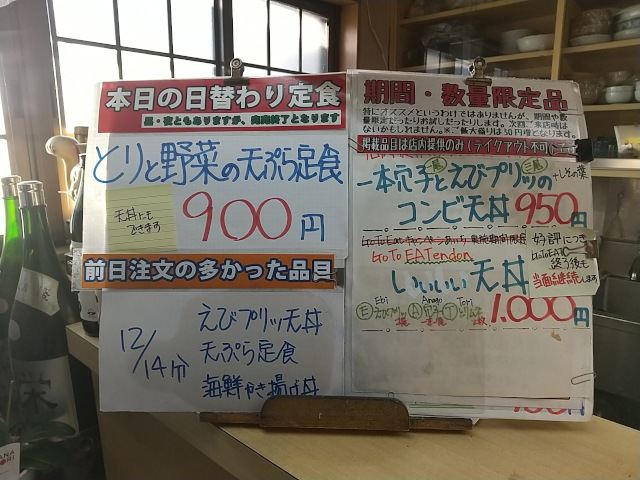 本日の日替わり定食
昼・夜ともありますが、売切終了となります
とりと野菜の天ぷら定食
天丼にも
できます
900円
前日注文の多かった品目
12/14分
えびプリッ天丼
天ぷら定食
海鮮かき揚げ丼
期間・数量限定品
特にオススメというわけではありませんが、期間や数
量限定だったりお試しだったりします。次回ご来店時は
ないかもしれません。※ご飯大盛りは50円増となります。
掲載品目は店内提供のみ(テイクアウト不可)
一本穴子とえびプリッの
+しその葉
コンビ天丼 950円
GoToEatキャンペーンあやかり 実施期間限定
GoTo EATendon
いいいい天丼
1,000円
Ebi
Anago
Tori
Eえびプリッ A穴子 Tとり
好評につき
GoToEAT
終了後も
当面継続します
栄